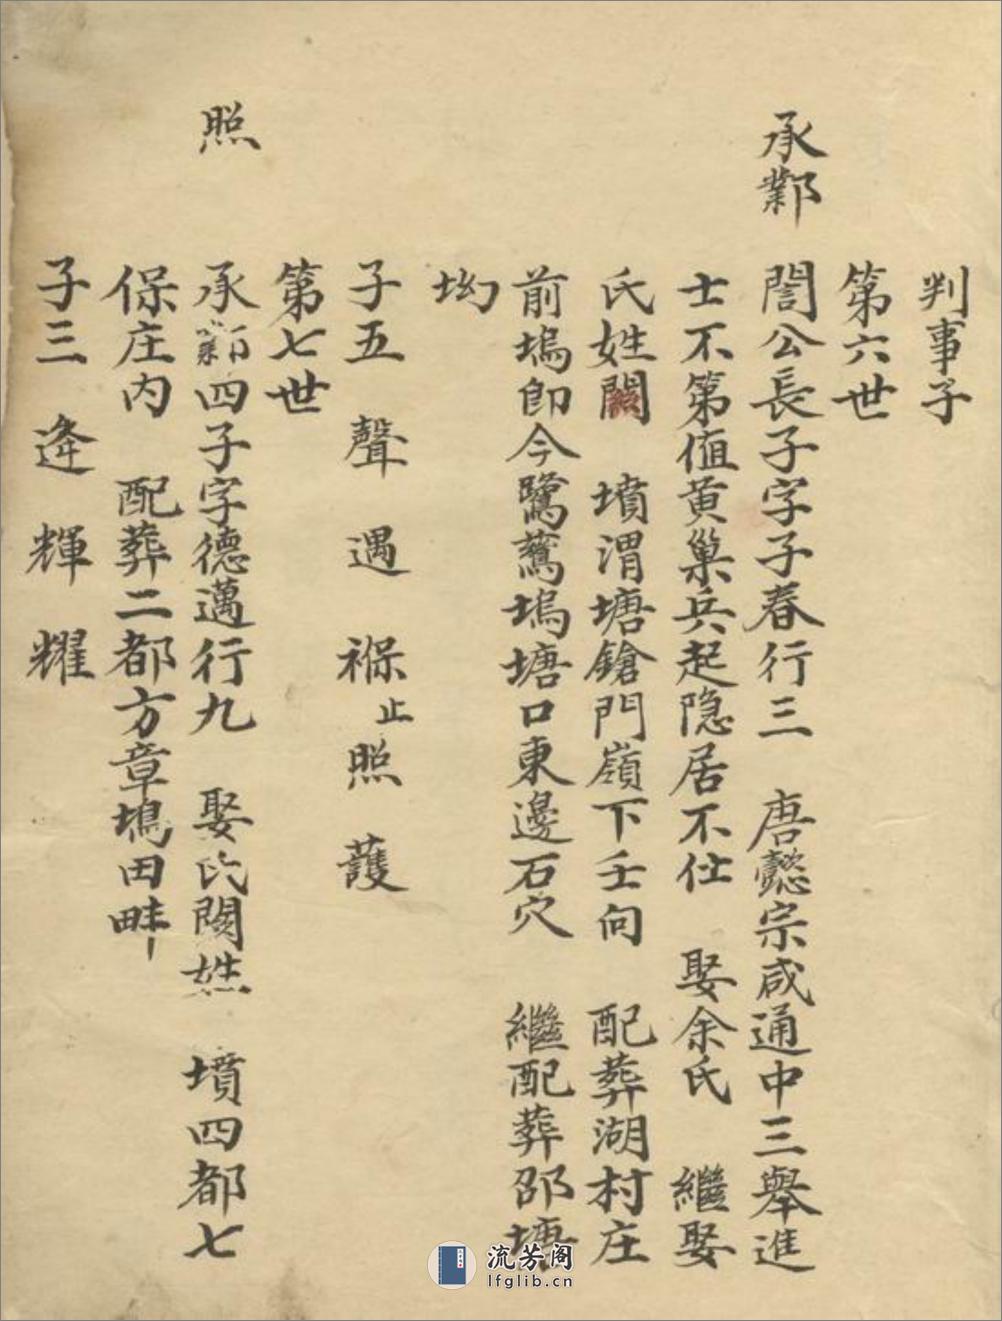 判事子
第六世
承鄴
誾公長子字子春行三 唐懿宗咸通中三舉進
士不第值黄巢兵起隐居不仕 娶余氏 繼娶
氏姓闕 墳渭塘鎗門嶺下壬向 配葬湖村庄
前塢即今鷺鷥塢塘口東邊石穴 繼配葬邵塘
坳
子五 聲 遇 褓止 照 護
第七世
照
承鄴四子字德邁行九 娶氏闕姓 墳四都七
保庄内 配葬二都方章塢田畔
子三 逄 輝 耀
流芳阁
lfglib.cn